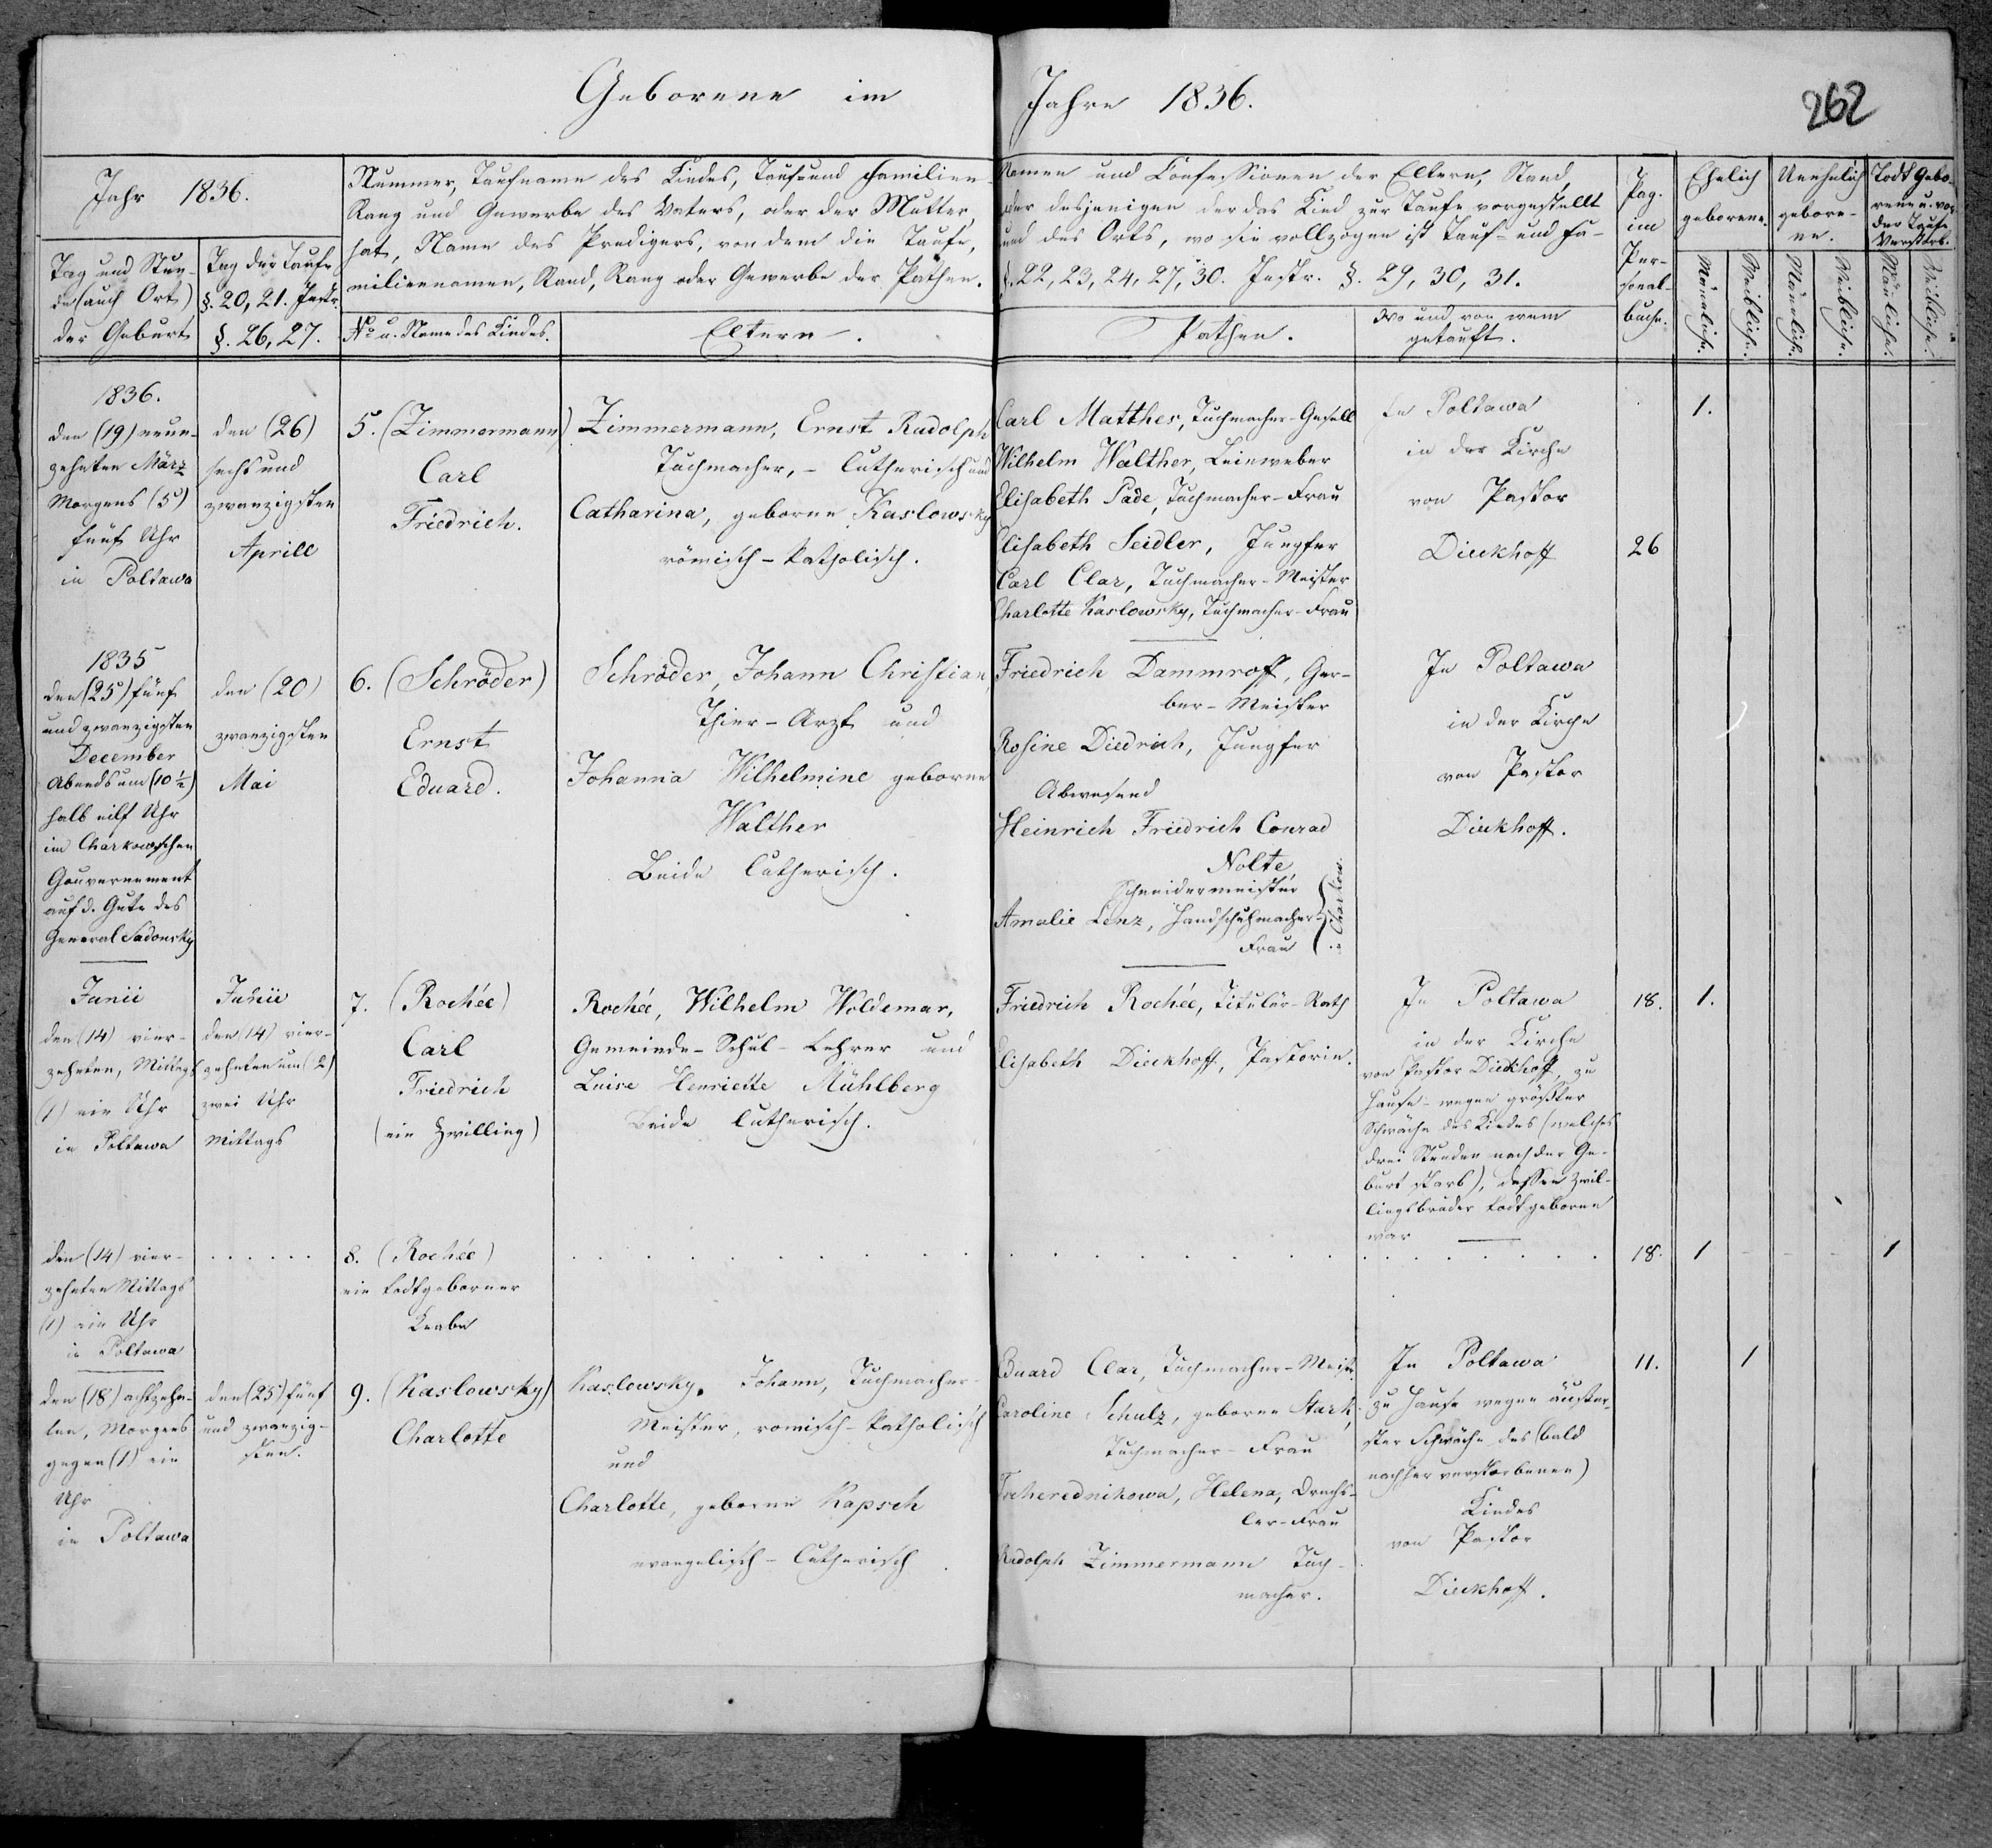 Geborene im Jahre 1836.
262
Jahr 1836.
Tag und Stun-
de (auch Ort)
der Geburt
Tag der Taufe
§. 20, 21. Instr.
§. 26, 27.
Nummer, Taufname des Kindes, Tauf und Familien-
Rang und Gewerbe des Vaters, oder der Mutter,
hat, Name des Predigers, von dem die Taufe,
miliennamen, Stand, Rang oder Gewerbe der Pathen.
No u. Name des Kindes.
Eltern.
Namen und Confessionen der Eltern, Stand,
oder desjenigen der das Kind zur Taufe vorgestellt
und des Orts, wo sie vollzogen ist Tauf- und Fa-
§. 22, 23, 24, 27, 30. Instr. §. 29, 30, 31.
Pathen.
Wo und von wem
getauft.
Pag.
im
Per-
sonal-
buche.
Ehelich
geborene.
Unehelich
gebore-
ne.
Todt Gebo-
rene u. vor
der Taufe
Verstorb.
Männliche.
Weibliche.
Männliche.
Weibliche.
Männliche.
Weibliche.
1836.
den (19) neun-
zehnten März
Morgens (5)
fünf Uhr
in Poltawa
den (26)
sechs und
zwanzigsten
Aprill
5. (Zimmermann)
Carl
Friedrich.
Zimmermann, Ernst Rudolph
Tuchmacher, - lutherisch und
Catharina, geborne Kaslowsky
römisch-katholisch.
Carl Matthes, Tuchmacher-Gesell
Wilhelm Walther, Leinweber
Elisabeth Pade, Tuchmacher-Frau
Elisabeth Seidler, Jungfer
Carl Clar, Tuchmacher-Meister
Charlotte Kaslowsky, Tuchmacher-Frau
In Poltawa
in der Kirche
von Pastor
Dieckhoff
26
1.
1835
den (25) fünf
und zwanzigsten
December
Abends um (10 1/2)
halb eilf Uhr
im Charkowschen
Gouvernement
auf d. Gute des
General Sadonsky
den (20)
zwanzigsten
Mai
6. (Schröder)
Ernst
Eduard.
Schröder, Johann Christian,
Thier-Arzt und
Johanna Wilhelmine geborne
Walther
Beide lutherisch.
Friedrich Dammroff, Ger-
ber-Meister
Rosine Diedrich, Jungfer
Abwesend
Heinrich Friedrich Conrad
Nolte
Schneidermeister
Amalie Lenz, Handschuhmacher-
Frau
Charkow.
In Poltawa
in der Kirche
von Pastor
Dieckhoff.
Junii
den (14) vier-
zehnten, Mittags
(1) ein Uhr
in Poltawa
Junii
den (14) vier-
zehnten um (2)
zwei Uhr
Mittags
7. (Rochée)
Carl
Friedrich
(ein Zwilling)
Rochée, Wilhelm Woldemar,
Gemeinde-Schul-Lehrer und
Luise Henriette Mühlberg
Beide lutherisch.
Friedrich Rochée, Titulär-Rath
Elisabeth Dieckhoff, Pastorin.
In Poltawa
in der Kirche
von Pastor Dieckhoff, zu
Hause - wegen größter
Schwäche des Kindes (welches
drei Stunden nach der Ge-
burt starb), dessen Zwil-
lingsbruder todtgeboren
war
18. 1.
den (14) vier-
zehnten Mittags
(1) ein Uhr
in Poltawa
8. (Rochée)
ein todtgeborner
Knabe
18. 1 1
den (18) achtzehn-
ten, Morgens
gegen (1) ein
Uhr
in Poltawa
den (25) fünf
und zwanzig-
sten.
9. (Kaslowsky)
Charlotte
Kaslowsky, Johann, Tuchmacher-
Meister, romisch-katholisch
und
Charlotte, geborne Kapsch
evangelisch-lutherisch.
Eduard Clar, Tuchmacher-Meistr.
Caroline Schulz, geborne Stark,
Tuchmacher-Frau
Tscherednikowa, Helena, Drechs-
ler-Frau
Rudolph Zimmermann Tuch-
macher.
In Poltawa
zu Hause wegen äußer-
ster Schwäche des (bald
nachher verstorbenen)
Kindes
von Pastor
Dieckhoff.
11. 1